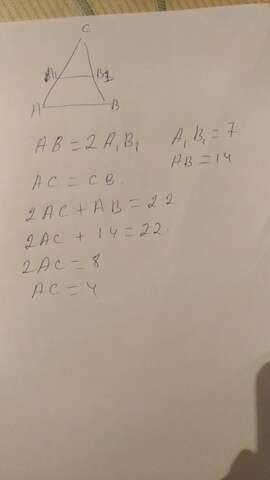 C
A₁ B₁
A B
AB = 2 A₁B₁ A₁B₁ = 7
AB = 14
AC = CB.
2AC + AB = 22
2AC + 14 = 22.
2AC = 8
AC = 4